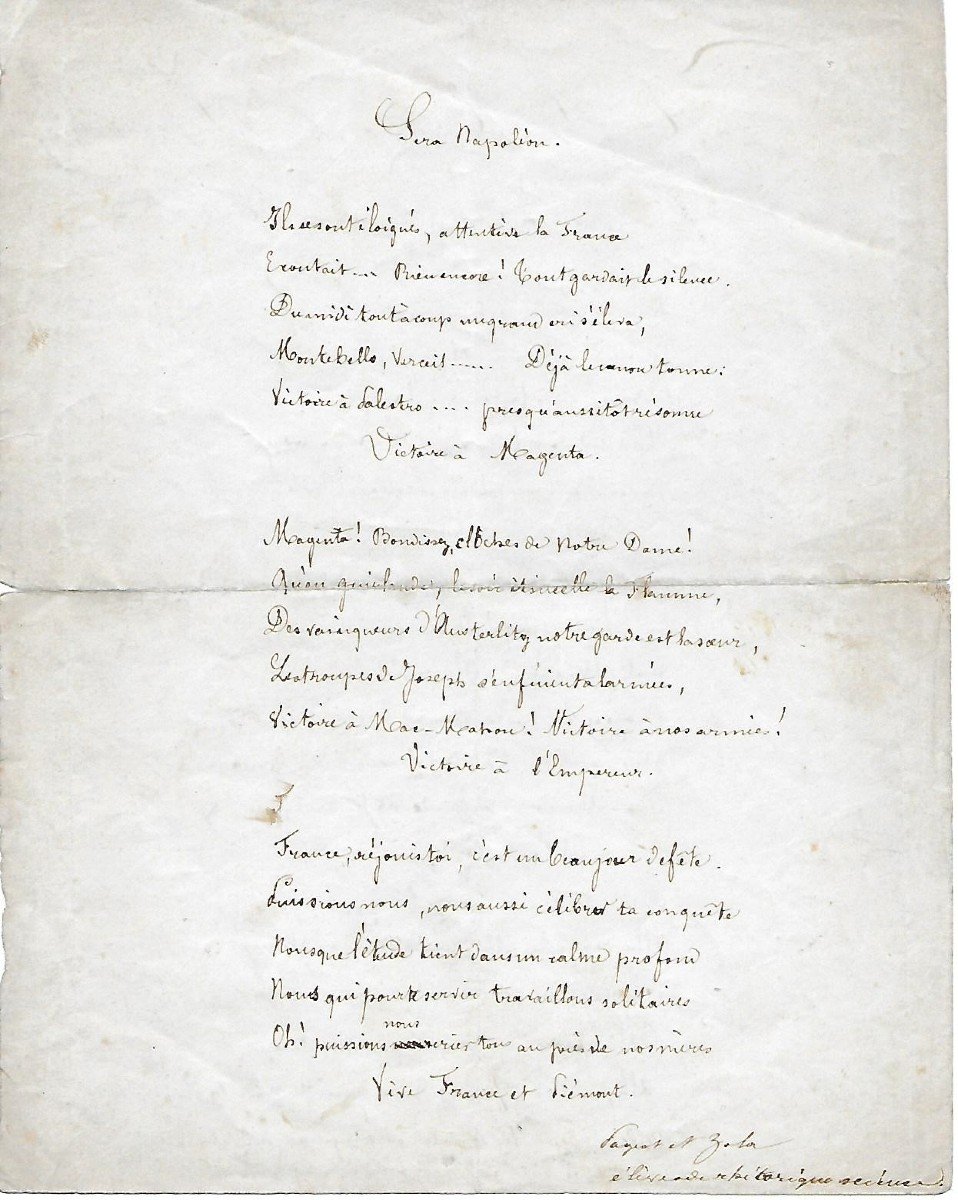 Sera Napoléon.
Ils se sont éloignés, attentive la France
Ecoutait... Rien encore! Tout gardait le silence.
Du midi tout à coup un grand cri s'éleva,
Montebello, Verceil...... Déjà le canon tonne:
Victoire à Palestro.... presqu'aussitôt résonne
Victoire à Magenta.
Magenta! Bondissez, clôches de Notre Dame!
Qu'on guirlande, le soir étincelle la flamme,
Des vainqueurs d'Austerlitz notre garde est la sœur,
Les troupes de Joseph s'enfuient alarmées,
Victoire à Mac-Mahon! Victoire à nos armées!
Victoire à l'Empereur.
France, réjouis toi, c'est un beau jour de fête.
Puissions nous, nous aussi célébrer ta conquête
Nous que l'étude tient dans un calme profond
Nous qui pour te servir travaillons solitaires
Oh! puissions nous crier tous auprès de nos mères
Vive France et Piémont.
Pagent et Zola
élèves de rhétorique science.